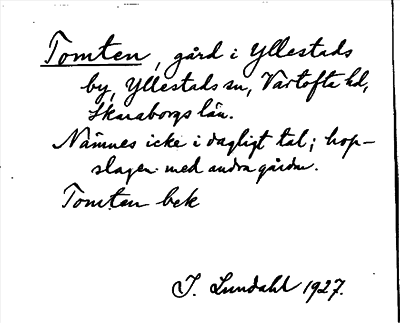 Tomten, gård i Yllestads
by, Yllestads sn, Vartofta hd,
Skaraborgs län.
Nämnes icke i dagligt tal; hop-
slagen med andra gårdar.
Tomten bek
I. Lundahl 1927.